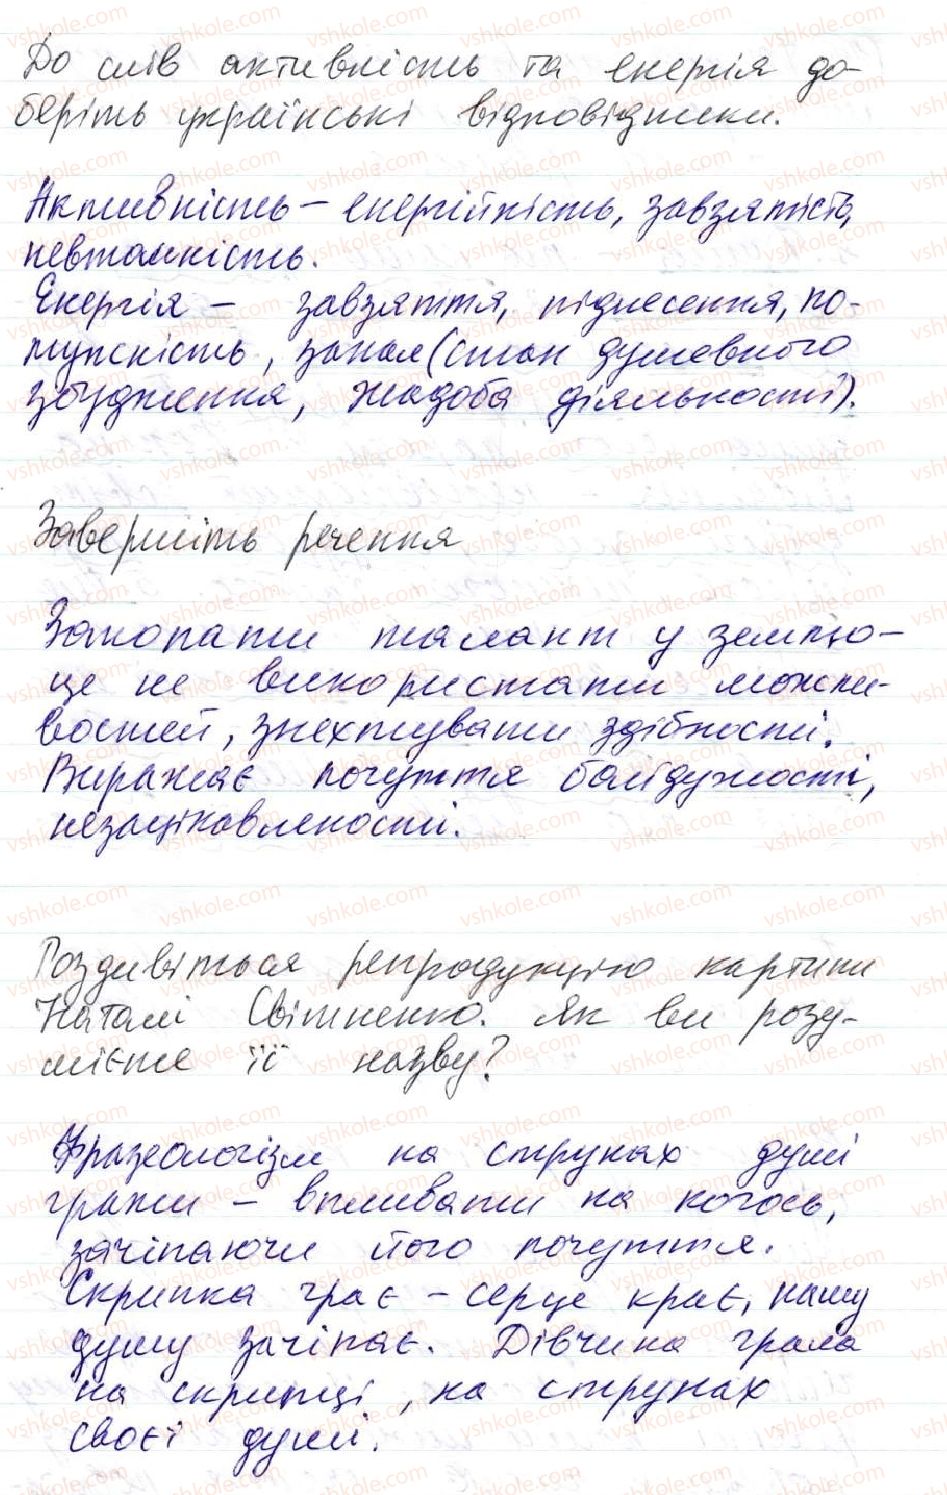 До слів активність та енергія до-
беріть українські відповідники.
Активність – енергійність, завзятість,
невтомність.
Енергія – завзяття, піднесення, по-
тужність, запал (стан душевного
збудження, жадоба діяльності).
Завершіть речення
Закопати талант у землю –
це не використати можли-
востей, знехтувати здібності.
Виражає почуття байдужості,
незацікавленості.
Роздивіться репродукцію картини
Наталі Світненко. Як ви розу-
мієте її назву?
Фразеологізм на струнах душі
грати – впливати на когось,
зачіпаючи його почуття.
Скрипка грає – серце крає, нашу
душу зачіпає. Дівчина грала
на скрипці, на струнах
своєї душі.